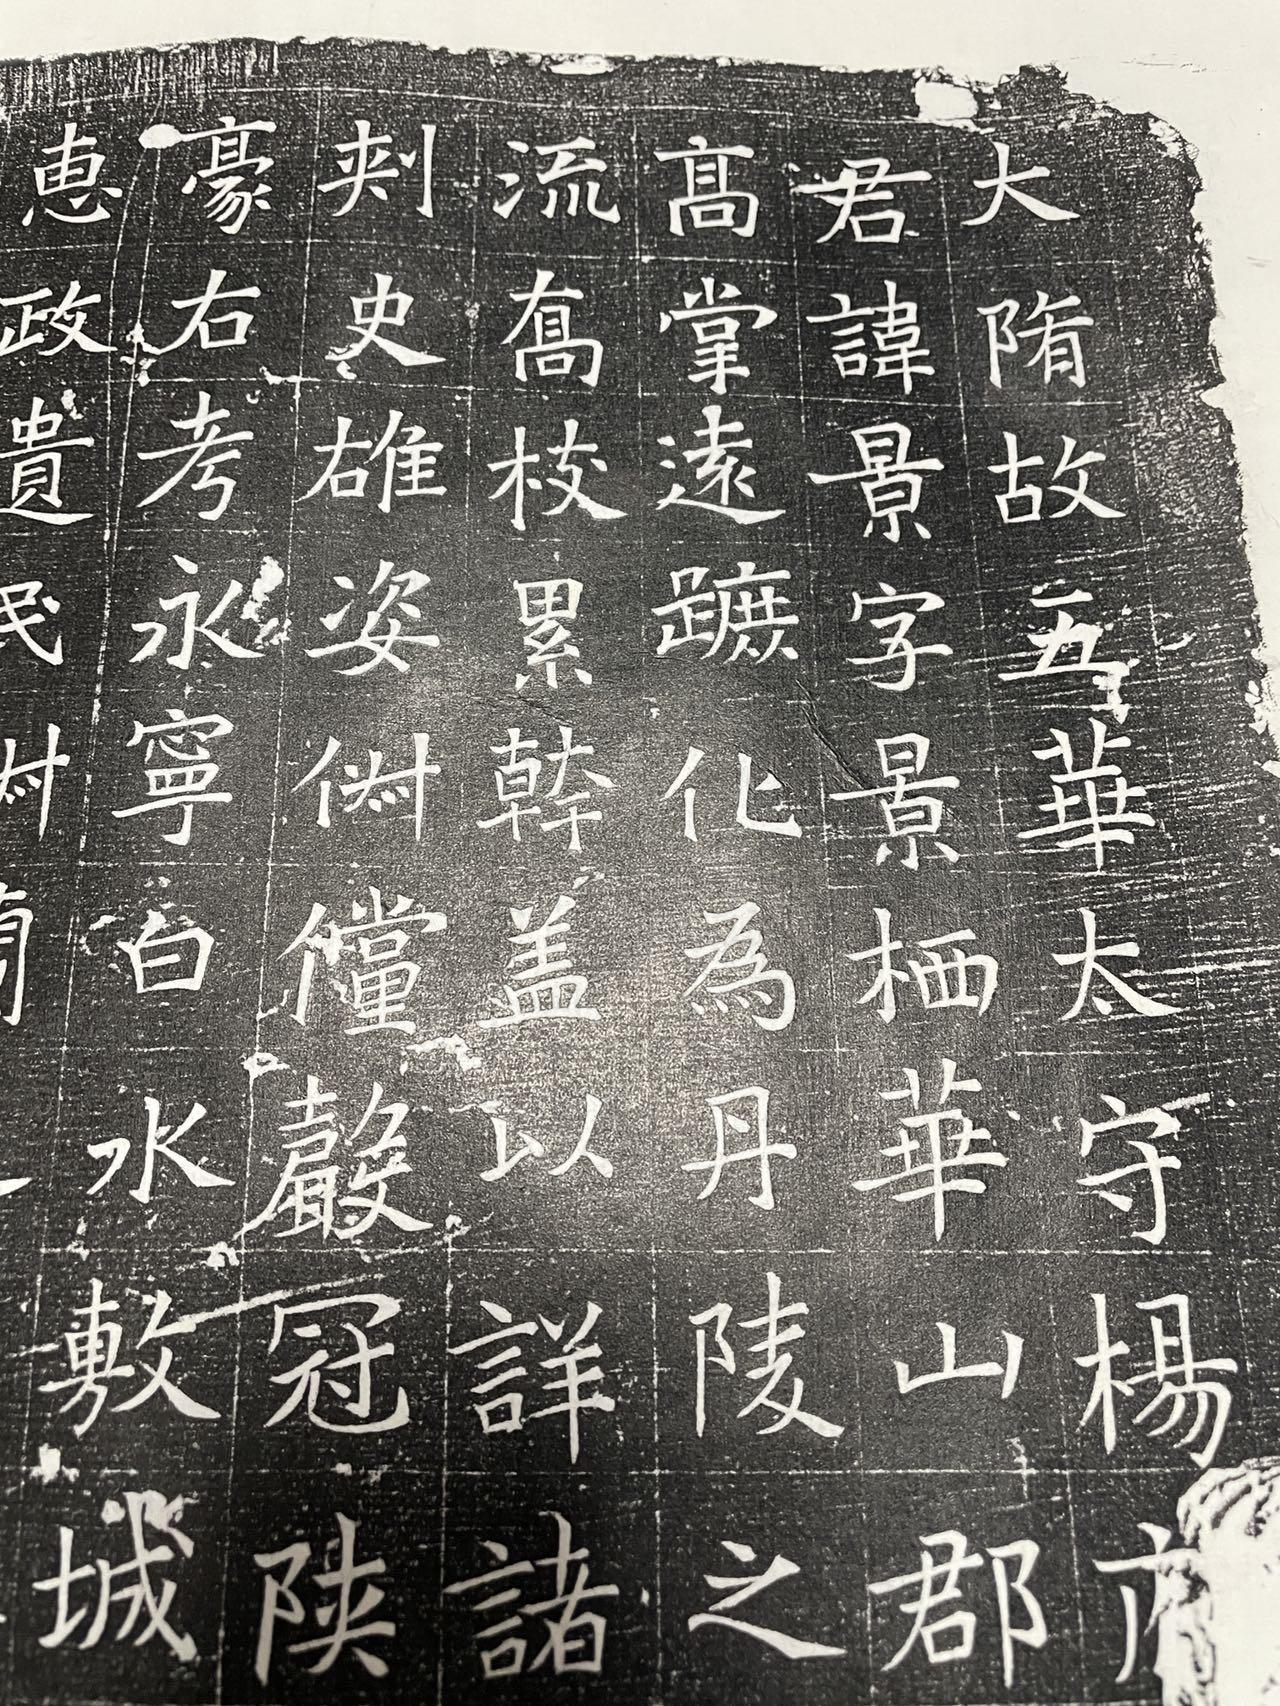 大隋故五華太守楊
君諱景字景栖華山郡
高掌遠蹠化為丹陵之
流喬枝累幹盖以詳諸
刺史雄姿倜儻聲冠陝
豪右考永寧白水敷城
惠政貴民